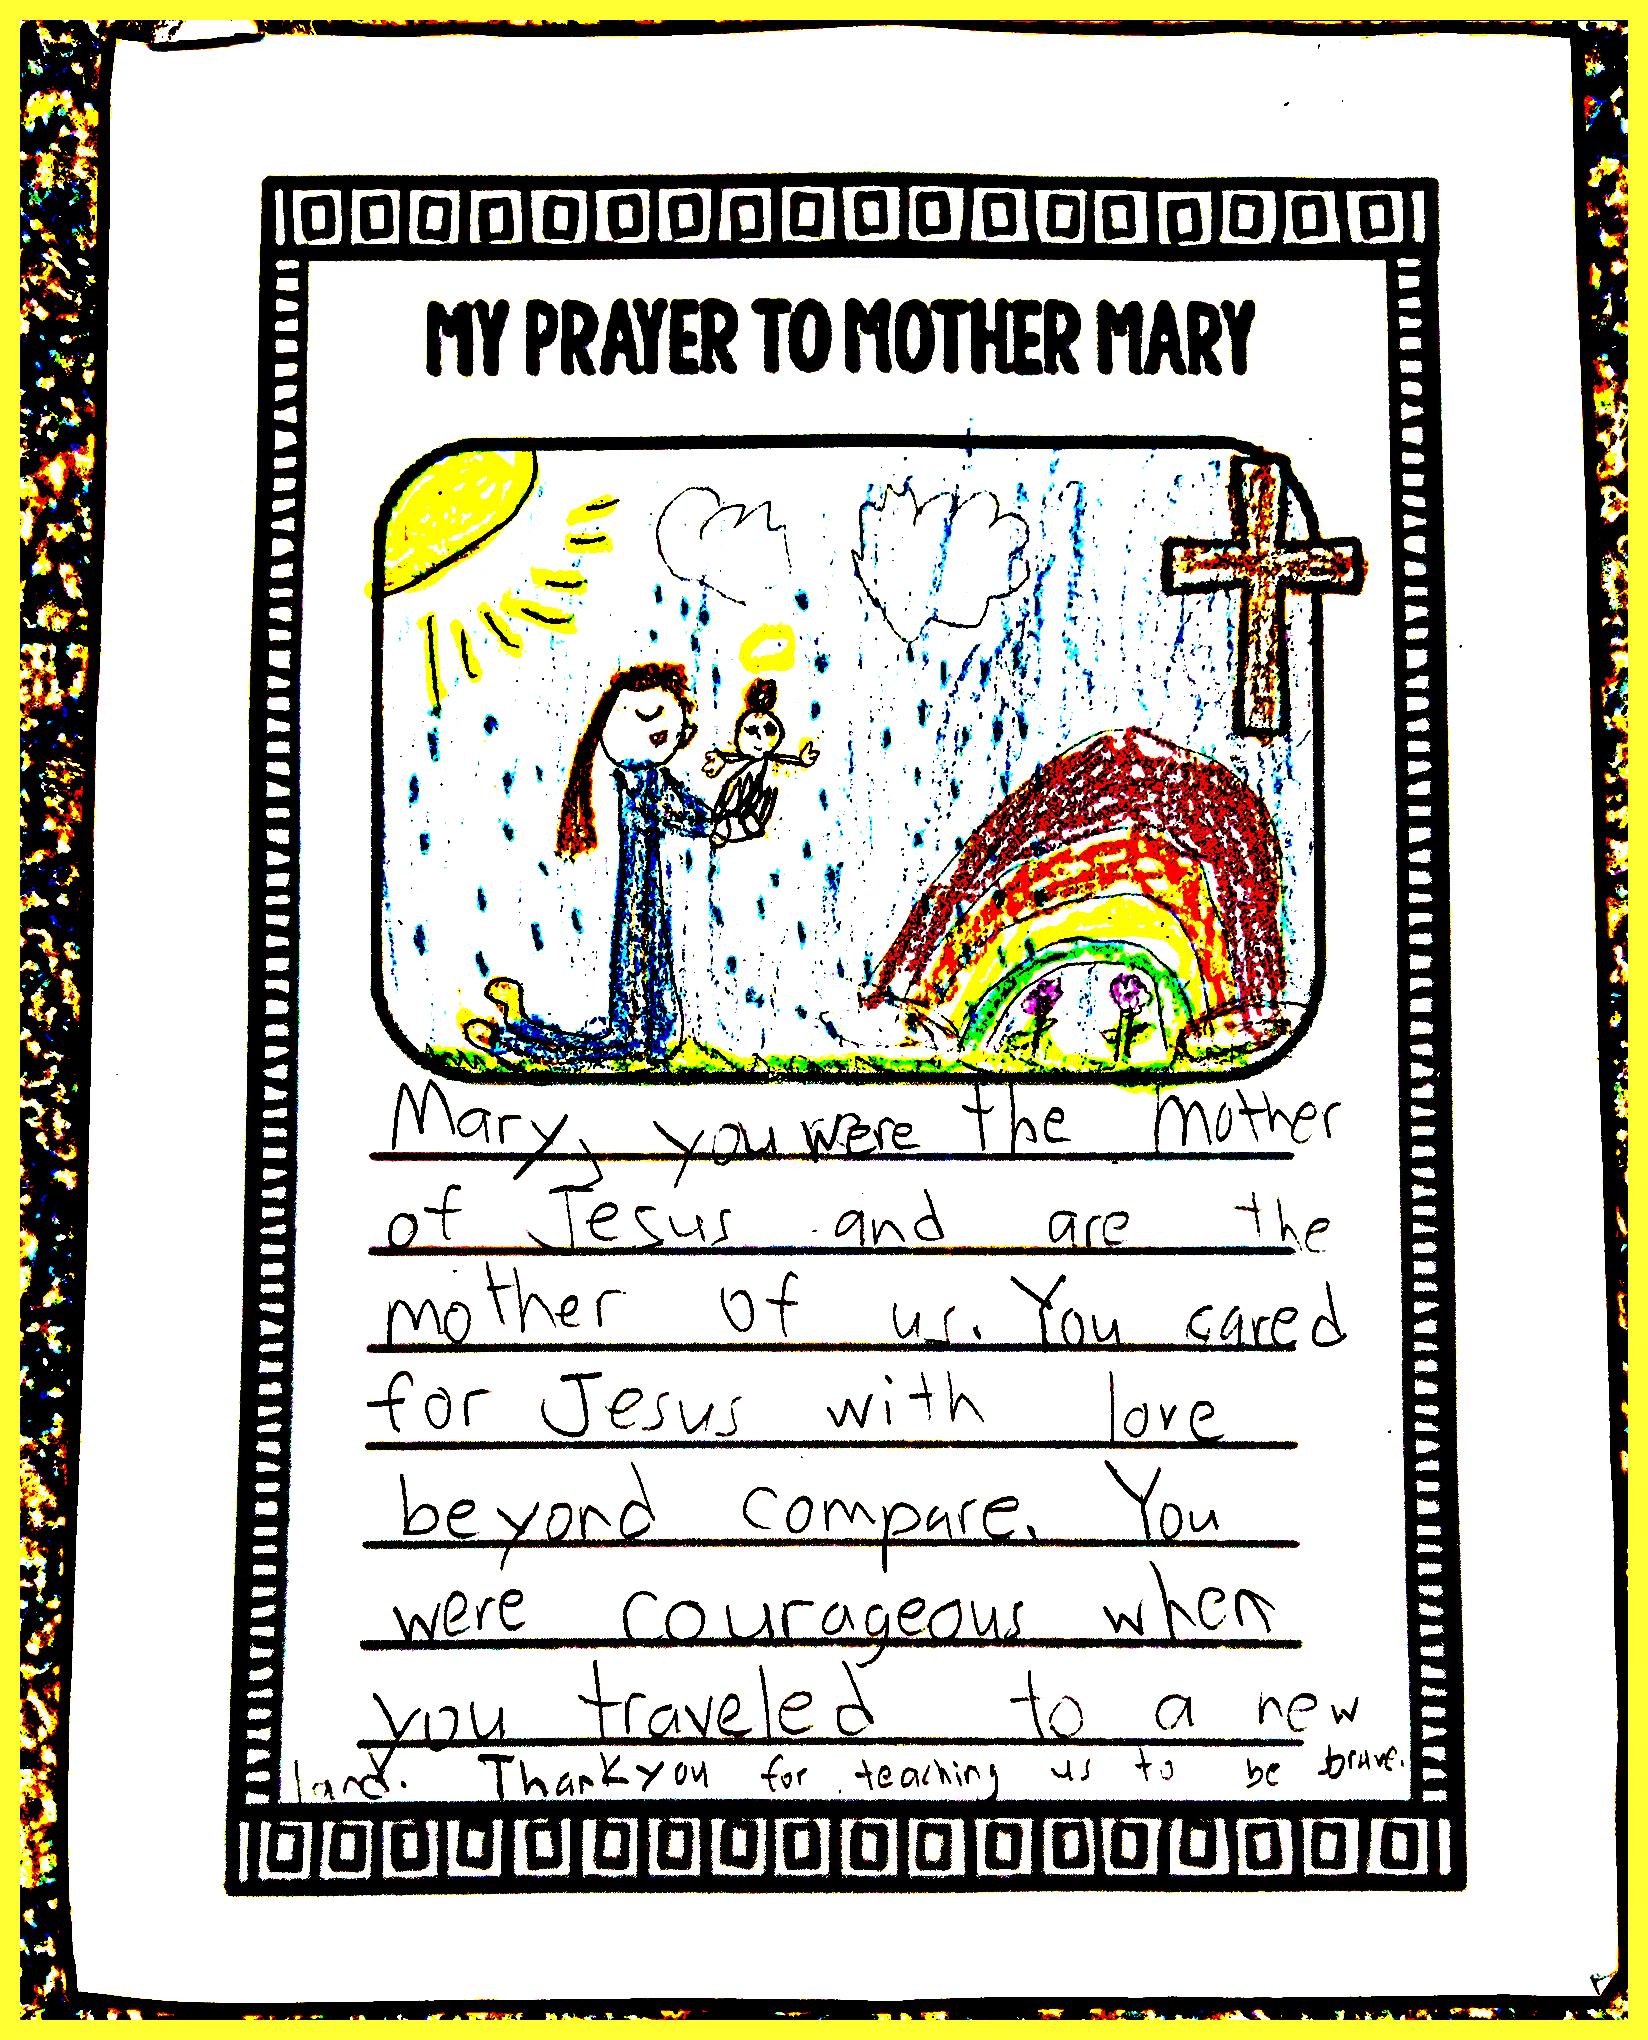 MY PRAYER TO MOTHER MARY
Mary, you were the mother
of Jesus and are the
mother of us. You cared
for Jesus with love
beyond compare. You
were courageous when
you traveled to a new
land. Thank you for teaching us to be brave.